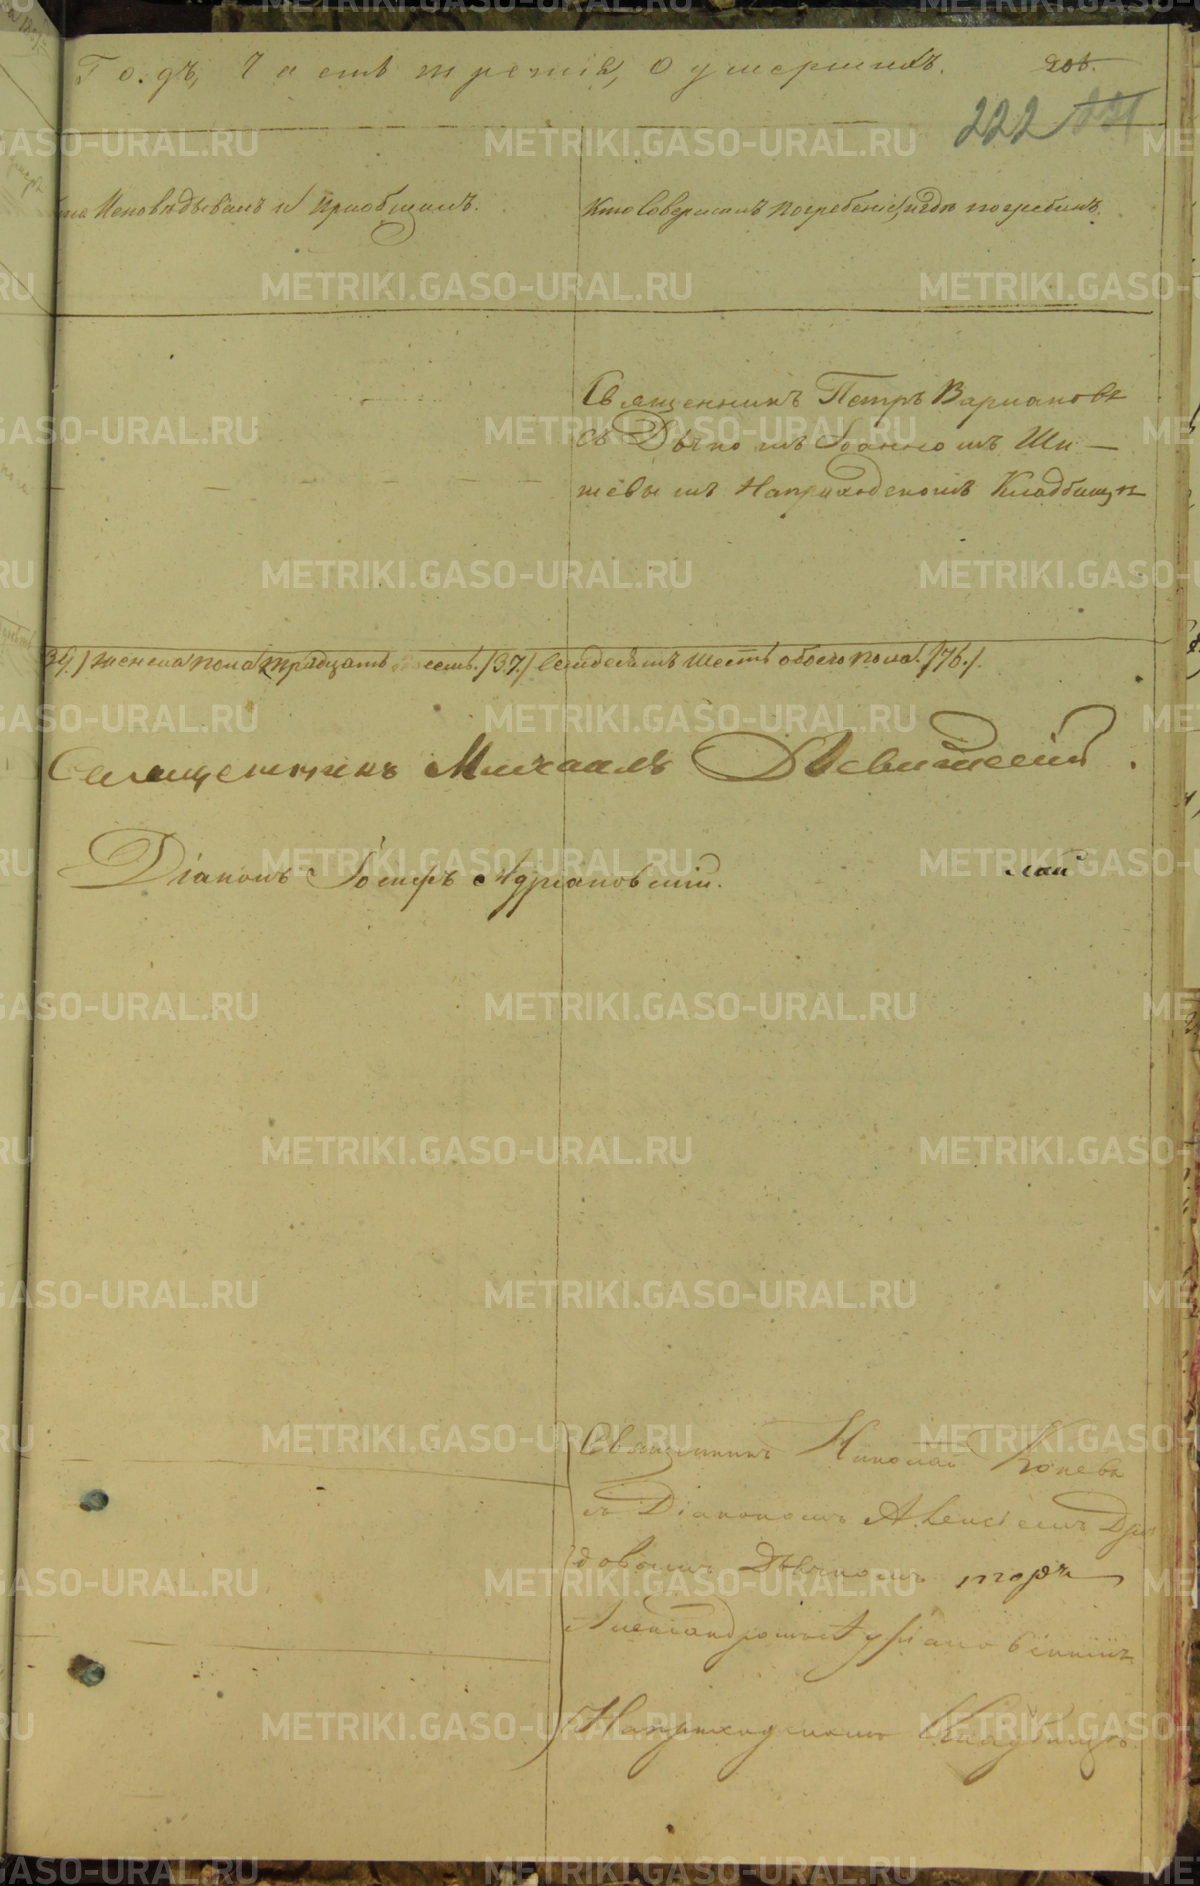 Годъ, Часть третія, О умершихъ.
205.
222 221
Кто Исповѣдывалъ и Приобщалъ.
Кто Совершалъ Погребеніе, и гдѣ погребенъ.
Священникъ Петръ
съ Дьячкомъ Іоанномъ Ши-
шевымъ На приходскомъ Кладбищѣ
39./ женска пола тридцать семь. /37./ Семдесятъ шесть обоего пола. /76./.
Священникъ Михаилъ
Діаконъ Іосифъ Адріановскій.
лай
Священникъ Николай
съ Діакономъ Алексіемъ
довымъ Дьячкомъ
Александромъ Адріановскимъ
На приходскомъ Кладбищѣ.
METRIKI.GASO-URAL.RU